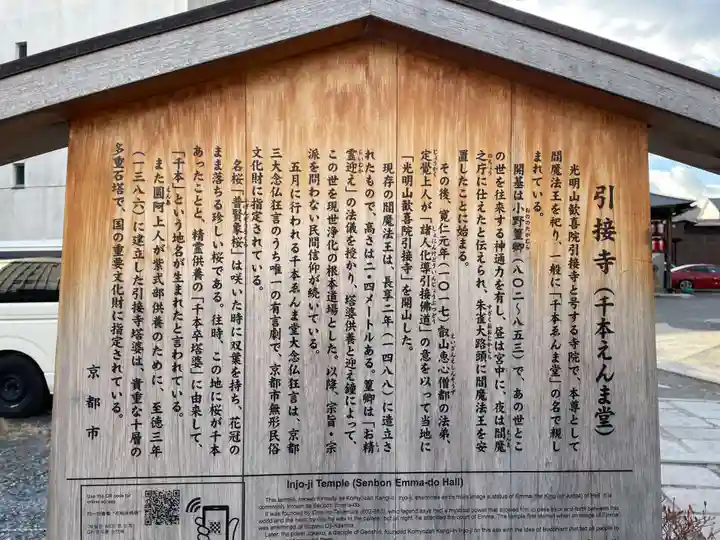 引接寺(千本えんま堂)
光明山歓喜院引接寺と号する寺院で、本尊として
閻魔法王を祀り、一般に「千本ゑんま堂」の名で親し
まれている。
開基は小野篁卿(八〇二~八五三)で、あの世とこ
の世を往来する神通力を有し、昼は宮中に、夜は閻魔
之庁に仕えたと伝えられ、朱雀大路頭に閻魔法王を安
置したことに始まる。
その後、寛仁元年(一〇一七)叡山恵心僧都の法弟、
定覚上人が「諸人化導引接佛道」の意を以って当地に
「光明山歓喜院引接寺」を開山した。
現存の閻魔法王は、長享二年(一四八八)に造立さ
れたもので、高さは二・四メートルある。篁卿は「お精
霊迎え」の法儀を授かり、塔婆供養と迎え鐘によって、
この世を現世浄化の根本道場とした。以降、宗旨・宗
派を問わない民間信仰が続いている。
五月に行われる千本ゑんま堂大念仏狂言は、京都
三大念仏狂言のうち唯一の有言劇で、京都市無形民俗
文化財に指定されている。
名桜「普賢象桜」は咲いた時に双葉を持ち、花冠の
まま落ちる珍しい桜である。往時、この地に桜が千本
あったことと、精霊供養の「千本卒塔婆」に由来して、
「千本」という地名が生まれたと言われている。
また圓阿上人が紫式部供養のために、至徳三年
(一三八六)に建立した引接寺塔婆は、貴重な十層の
多重石塔で、国の重要文化財に指定されている。
京都市
Injo-ji Temple (Senbon Emma-do Hall)
Use this QR code for
online access.